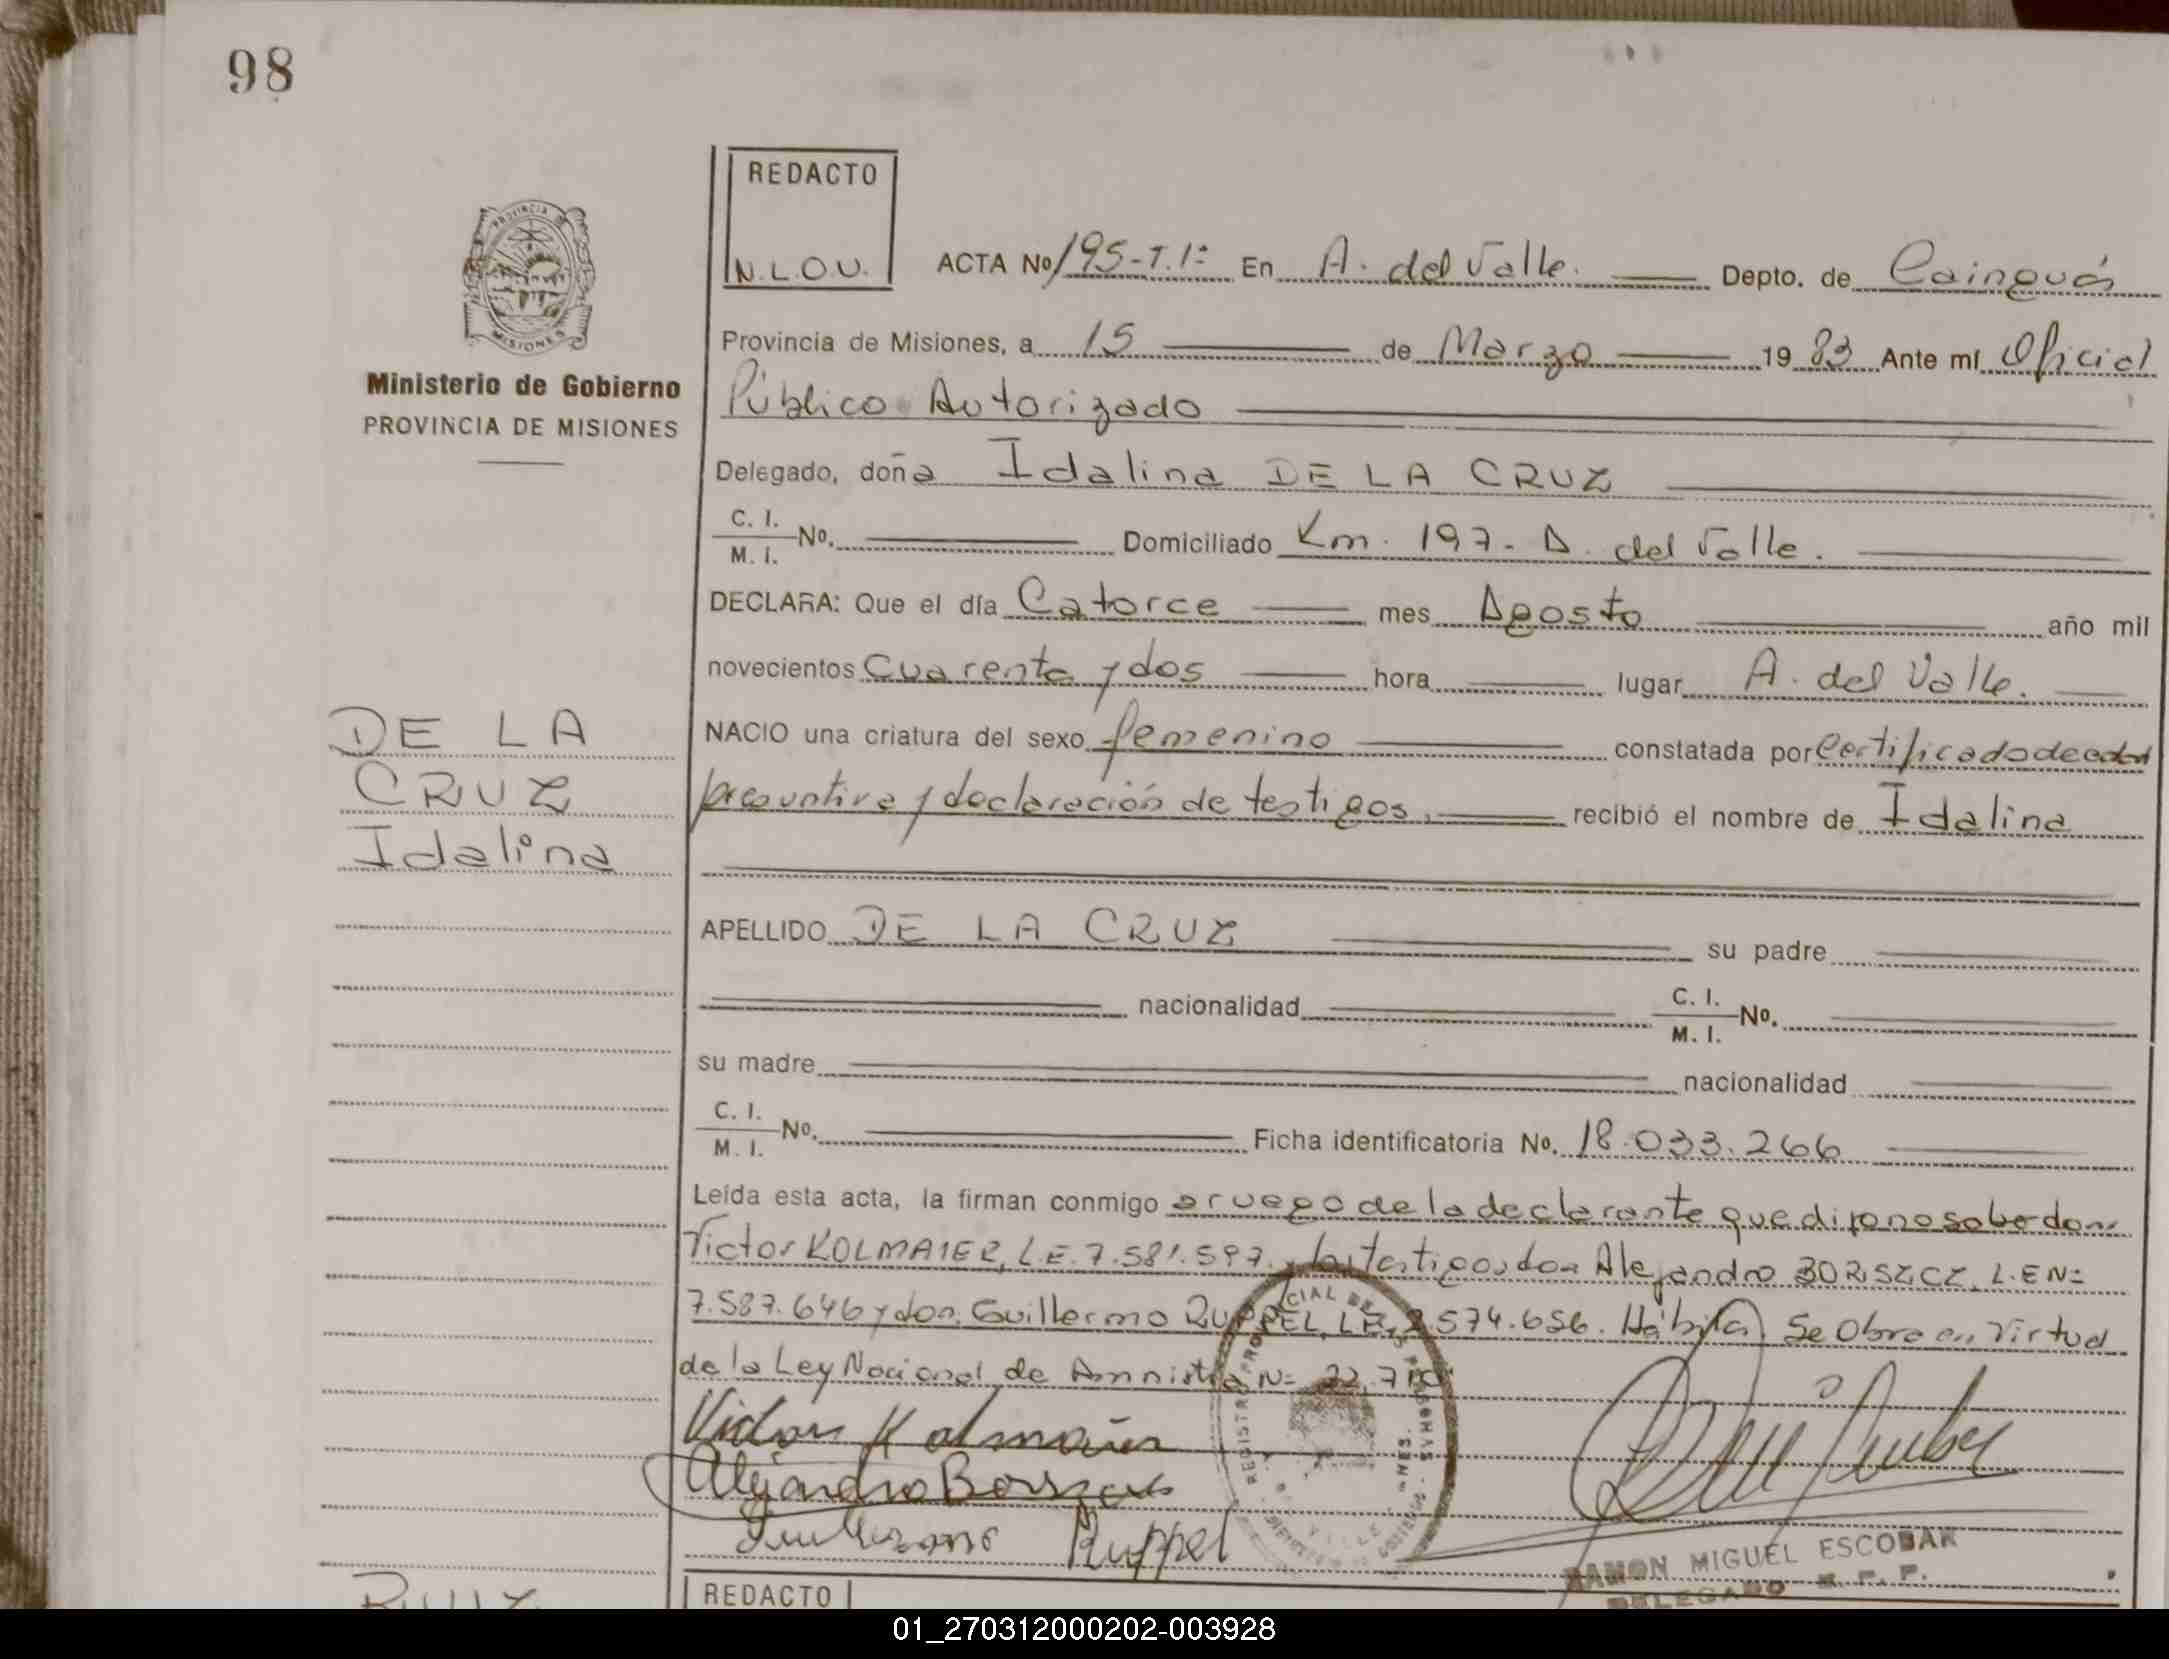 98
REDACTO
N.L.O.U.
ACTA Nº 195-T.1º En A. del Valle. Depto. de Cainguás
Provincia de Misiones, a 15 de Marzo 1983 Ante mí Oficial
Público Autorizado
Ministerio de Gobierno
PROVINCIA DE MISIONES
Delegado, doña Idalina DE LA CRUZ
C. I. / M. I. Nº. Domiciliado Km. 197- A. del Valle.
DECLARA: Que el día Catorce mes Agosto año mil
novecientos Cuarenta y dos hora lugar A. del Valle.
NACIO una criatura del sexo femenino constatada por Certificado de edad
presuntiva y declaración de testigos, recibió el nombre de Idalina
DE LA
CRUZ
Idalina
APELLIDO DE LA CRUZ su padre
nacionalidad C. I. / M. I. Nº.
su madre nacionalidad
C. I. / M. I. Nº. Ficha identificatoria Nº. 18.033.266
Leída esta acta, la firman conmigo a ruego de la declarante que dijo no saber don
Victor KOLMAIER, L.E. 7.581.597. y los testigos don Alejandro BORSZCZ, L.E Nº
7.587.646 y don Guillermo RUPPEL, L.E. 574.656. Hábiles Se Obra en Virtud
de la Ley Nacional de Amnistía Nº 22.710
Victor Kolmaier
Alejandro Borszcz
Guillermo Ruppel
RAMON MIGUEL ESCOBAR
DELEGADO R. P. P.
REDACTO
01_270312000202-003928